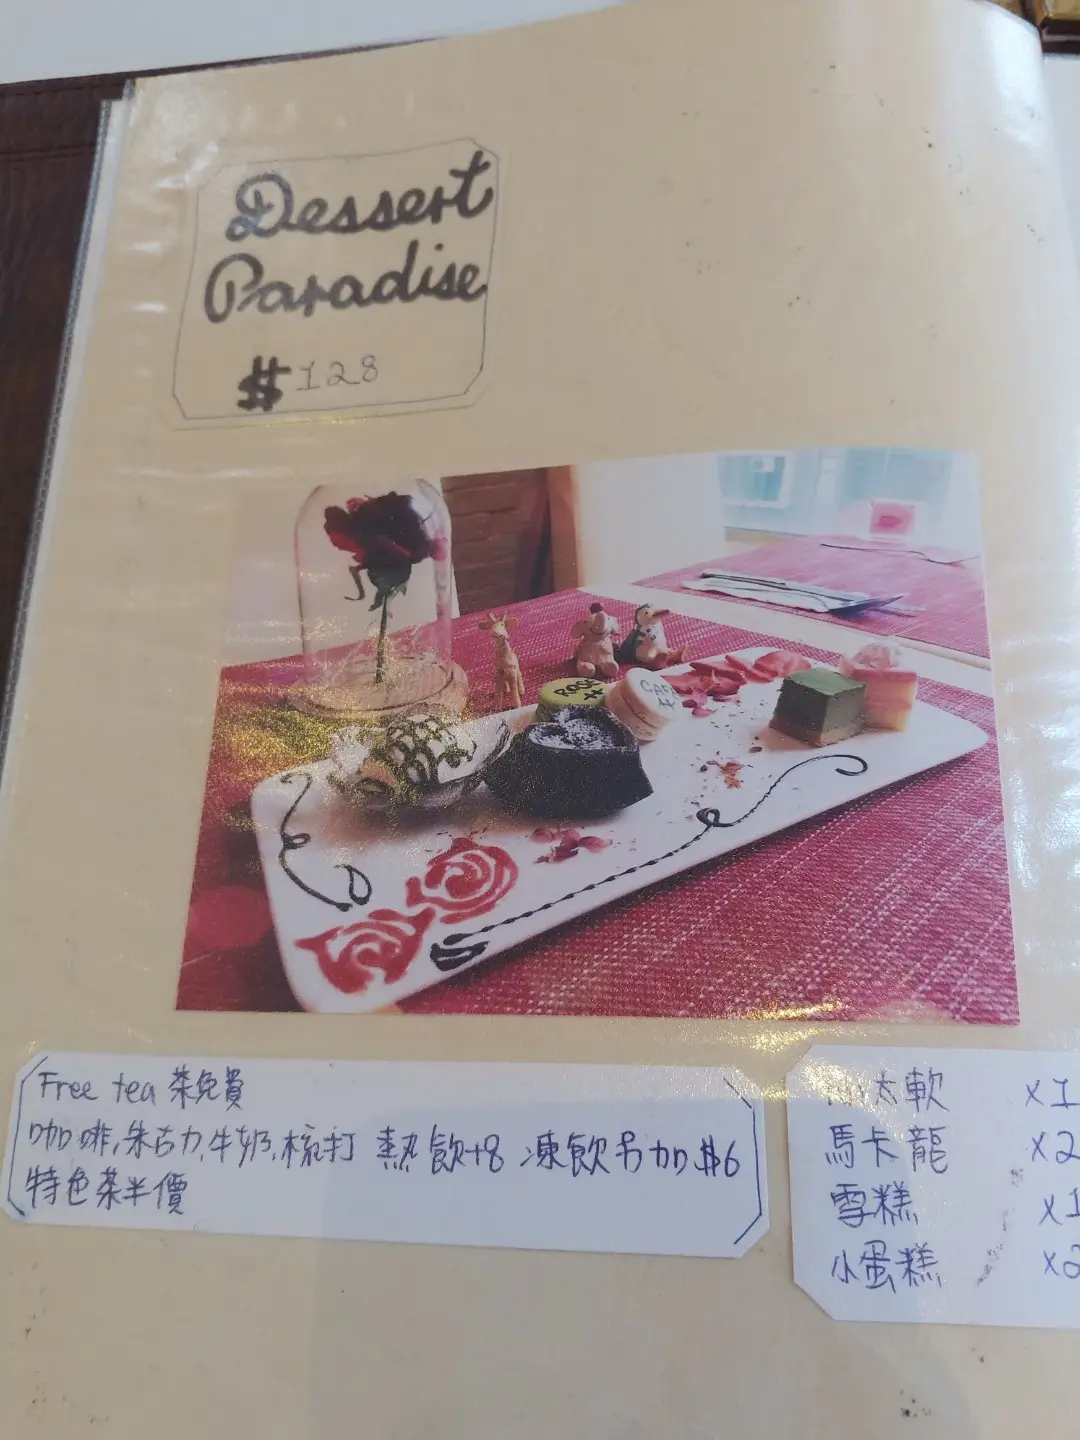 Dessert
Paradise
$128
ROSE
CAFE
Free tea 茶免費
咖啡,朱古力,牛奶,梳打 熱飲+8 凍飲另加$6
特色茶半價
太軟 x1
馬卡龍 x2
雪糕 x1
小蛋糕 x2